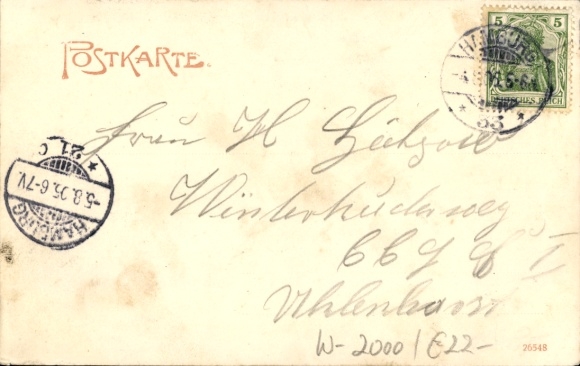 POSTKARTE.
5 5
DEUTSCHES REICH
HAMBURG
* 33 *
Frau H
Winterhuderweg
I
Uhlenhorst
* 21 c
-5.8.05.6-7V.
HAMBURG
W-2000 / €22-
26848